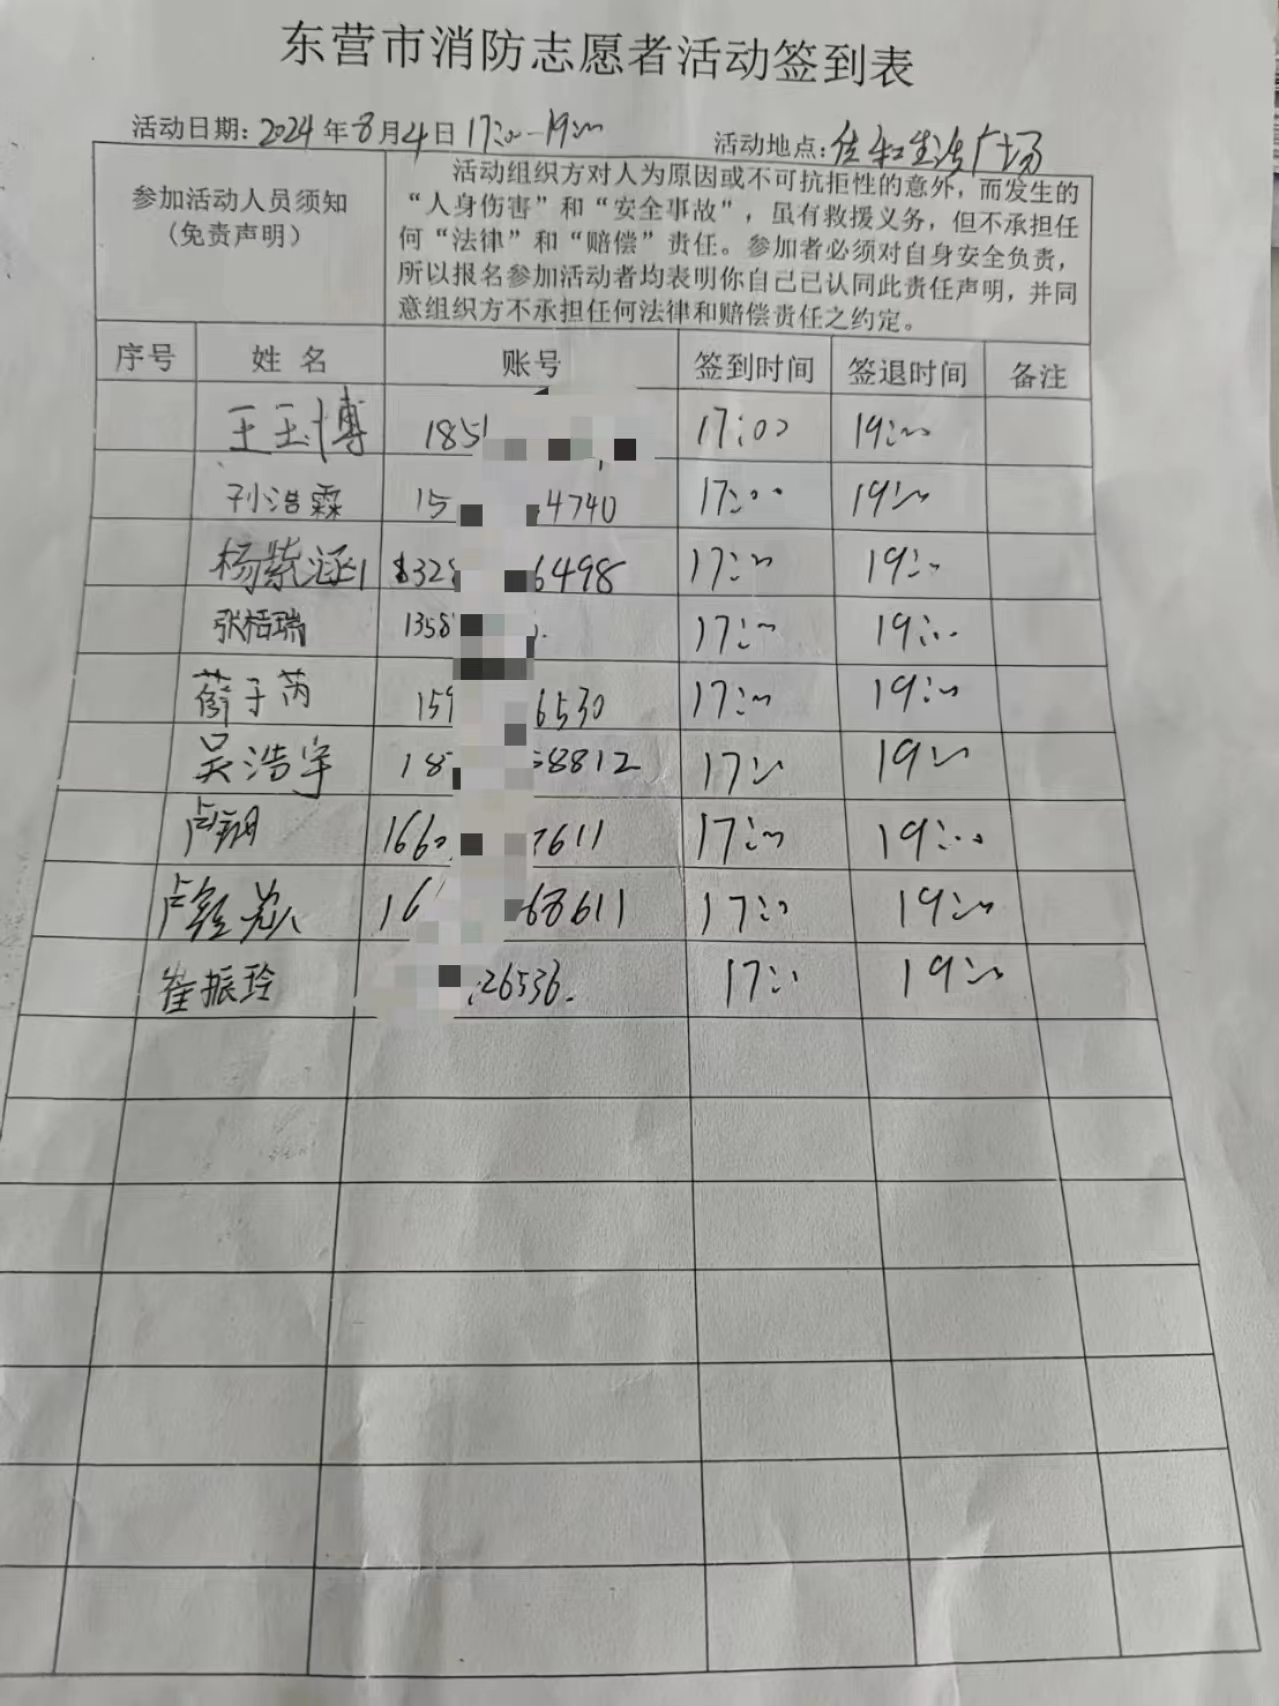 东营市消防志愿者活动签到表
活动日期：2024年8月4日 17:00-19:00 活动地点：佳和生活广场
参加活动人员须知
（免责声明）
活动组织方对人为原因或不可抗拒性的意外，而发生的
“人身伤害”和“安全事故”，虽有救援义务，但不承担任
何“法律”和“赔偿”责任。参加者必须对自身安全负责，
所以报名参加活动者均表明你自己已认同此责任声明，并同
意组织方不承担任何法律和赔偿责任之约定。
序号 姓名 账号 签到时间 签退时间 备注
王玉博 185 17:00 19:00
孙浩霖 15 4740 17:00 19:00
杨紫涵 1328 6498 17:00 19:00
张梧瑞 1358 17:00 19:00
薛于芮 159 6530 17:00 19:00
吴浩宇 18 8812 17:00 19:00
卢 1660 7611 17:00 19:00
卢 16 68611 17:00 19:00
崔振玲 26536. 17:00 19:00